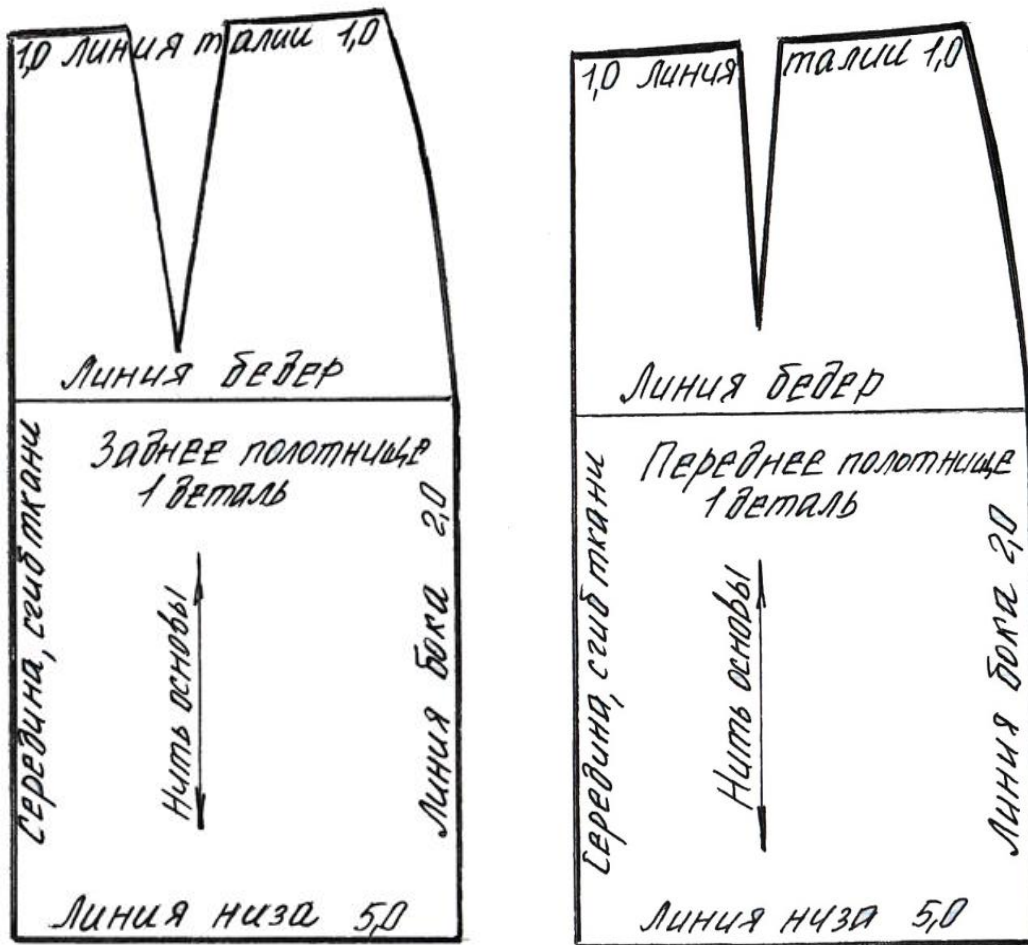 1,0 линия талии 1,0
Линия бедер
Заднее полотнище
1 деталь
Середина, сгиб ткани
Нить основы
Линия бока 2,0
Линия низа 5,0
1,0 линия талии 1,0
Линия бедер
Переднее полотнище
1 деталь
Середина, сгиб ткани
Нить основы
Линия бока 2,0
Линия низа 5,0